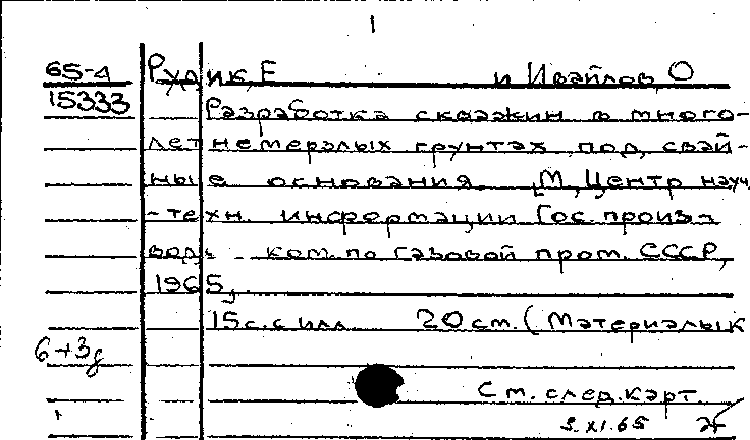 1
65-4 Рудик, Е и Ивайлов, О
15333 Разработка скважин в много-
летнемерзлых грунтах под свай-
ные основания. [М, Центр науч
-техн. информации Гос. произ-
вод. ком. по газовой пром. СССР,
1965,
15 с. с илл. 20 см. (Материалы к
6+3д
См. след. карт.
XI.65